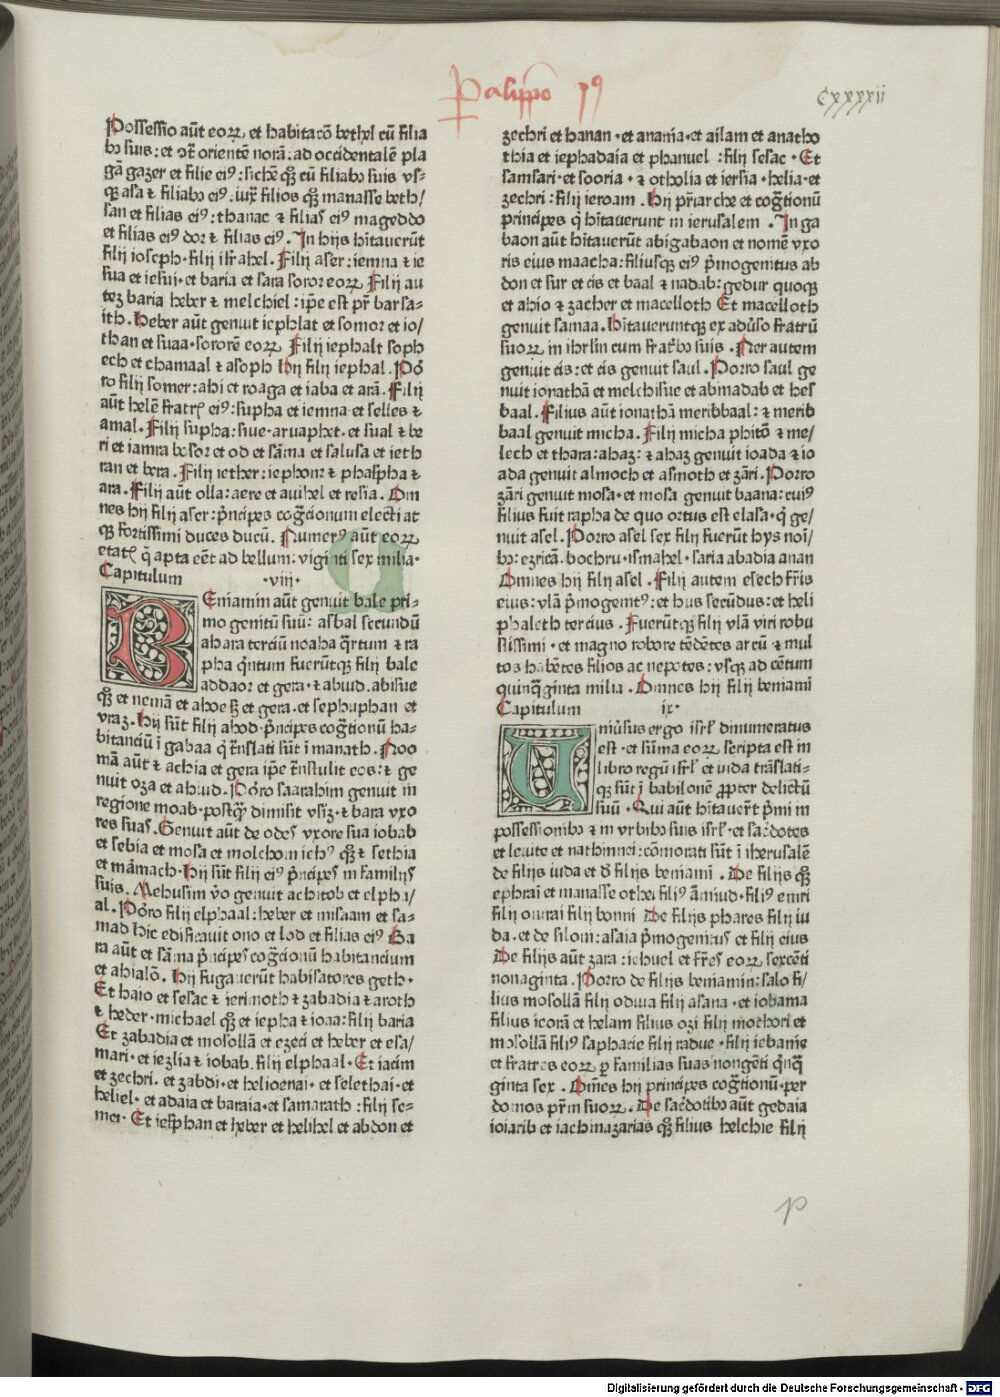 Palippo 1⁹
Cxxxxii
Possessio aūt eoꝝ et habitacō bethel cū filia
bꝰ suis: et ꝯt̄ orientē norā: ad occidentalē pla
gā gazer et filie ei⁹: sichē qꝫ cū filiabꝰ suis vs-
qꝫ asa ⁊ filiabꝰ ei⁹. iux̄ filios qꝫ manasse beth/
san et filias ei⁹: thanac ⁊ filias ei⁹ mageddo
et filias ei⁹ dor ⁊ filias ei⁹. In hijs hītauerūt
filij ioseph · filij isr̄ahel. Filij aser: iemna ⁊ ie
sua et iesui · et baria et sara soror eoꝝ Filij au
teʒ baria heber ⁊ melchiel: ip̄e est pr̄ barsa-
ith. Heber aūt genuit iephlat et somor et io/
than et suaa · sororē eoꝝ Filij iephalt soph
ech et chamaal ⁊ asoph Hij filij iephal. Po᷑
ro filij somer: ahi et roaga et iaba et arā. Filij
aūt helē fratr̄ ei⁹: supha et iemna et selles ⁊
amal. Filij supha: siue · aruaphet · et sual ⁊ be
ri et iamra bosor et od et sāma et salusa et ieth
ran et bera. Filij iether: iephonr ⁊ phaspha ⁊
ara. Filij aūt olla: aere et auihel et resia. Om
nes hij filij aser: p̄ncipes coḡtionum electi at
qꝫ fortissimi duces ducū. Numer⁹ aūt eoꝝ
etatꝭ q̄ apta eēt ad bellum: viginti sex milia ·
Capitulum · viii ·
BEniamin aūt genuit bale pri-
mo genitū suū: asbal secundū
ahara terciū noaha q̄rtum ⁊ ra
pha q̄ntum fuerūtqꝫ filij bale
addaor et gera · ⁊ abiud. abisue
qꝫ et nemā et ahoe ꝫ et gera. et sephuphan et
vraʒ. Hij sūt filij ahod · p̄ncipes coḡtionū ha-
bitanciū ī gabaa q̄ t̄nslati sūt ī manath. Noo
mā aūt ⁊ achia et gera ip̄e t̄nstulit eos: ⁊ ge
nuit oza et abiud. Po᷑ro saarahim genuit in
regione moab · postq̄ʒ dimisit vsīʒ · ⁊ bara vxo
res suas. Genuit aūt de odes vxore sua iobab
et sebia et mosa et molchom ich⁹ qꝫ ⁊ sethia
et mām̄ach · Hij sūt filij ei⁹ p̄ncipes in familijs
suis. Mehusim v̄o genuit achitob et elphi/
al. Po᷑ro filij elphaal: heber et misaam et sa-
mad hic edificauit ono et lod et filias ei⁹ Ba
ra aūt et sāma p̄ncipes coḡtionū habitancium
et ahialō. Hij fugauerūt habitatores geth ·
Et haio et sesac ⁊ ierimoth ⁊ zabadia ⁊ aroth
⁊ heder · michael qꝫ et iepha ⁊ ioaa: filij baria
Et zabadia et mosollā et ezeci et heber et esa/
mari · et iezlia ⁊ iobab. filij elphaal · Et iacim
et zechri. et zabdi · et helioenai · et selethai · et
heliel · et adaia et baraia · et samarath: filij se-
mei · Et iesphan et heber et helihel et abdon et
zechri et hanan · et anania · et ailam et anatho
thia et iephadaia et phanuel: filij sesac · Et
samsari · et sooria · ⁊ otholia et iersia · helia · et
zechri: filij ieroam. Hij pr̄iarche et coḡtionū
principes q̄ hītauerunt in ierusalem. In ga
baon aūt hītauerūt abigabaon et nomē vxo
ris eius maacha: filiusqꝫ ei⁹ p̄mogenitus ab
don et sur et cis et baal ⁊ nadab: gedur quoqꝫ
et ahio ⁊ zacher et macelloth Et macelloth
genuit samaa. Hītaueruntqꝫ ex adūso fratrū
suoꝝ in ihrl̄m cum frat̄bꝰ suis. Ner autem
genuit cis: et cis genuit saul. Porro saul ge
nuit ionathā et melchisue et abinadab et hes
baal. Filius aūt ionathā meribbaal: ⁊ merib
baal genuit micha. Filij micha phitō ⁊ me/
lech et thara: ahaʒ: ⁊ ahaʒ genuit ioada ⁊ io
ada genuit almoch et asmoth et zāri. Porro
zāri genuit mosa · et mosa genuit baana: cui⁹
filius fuit rapha de quo ortus est elasa · q̄ ge/
nuit asel. Porro asel sex filij fuerūt hys noī/
bꝰ: ezricā. bochru · ismahel · saria abadia anan
Omnes hij filij asel. Filij autem esech fr̄is
eius: vlā p̄mogenit⁹: et hus secūdus: et heli
phaleth tercius. Fuerūtqꝫ filij vlā viri robu
stissimi · et magno robore tēdētes arcū ⁊ mul
tos habētes filios ac nepotes: vsqꝫ ad cētum
quinq̄ginta milia. Omnes hij filij beniami
Capitulum ix ·
UNiūsus ergo isrl̄ dinumeratus
est · et sūma eoꝝ scripta est in
libro regū isrl̄ et iuda trāslati-
qꝫ sūt ī babilonē ꝓpter delictū
suū. Qui aūt hītauer̄t p̄mi in
possessionibꝰ ⁊ in vrbibꝰ suis isrl̄ · et sac̄dotes
et leuite et nathinnei: cōmorati sūt ī iherusalē
de filijs iuda et d̄ filijs beniami. De filijs qꝫ
ephrai et manasse othei fili⁹ āmiud · fili⁹ emri
filij omrai filij bonni De filijs phares filij iu
da · et de siloni: asaia p̄mogenitus et filij eius
De filijs aūt zara: iehuel et fr̄es eoꝝ sexcēti
nonaginta. Porro de filijs beniamin: salo fi/
lius mosollā filij odiua filij asana · et iobama
filius icorā et helam filius ozi filij mochori et
mosollā fili⁹ saphacie filij radue · filij iebanie
et fratres eoꝝ ꝑ familias suas nongēti q̄nq̄
ginta sex. Om̄es hij principes coḡtionū · per
domos pr̄m suoꝝ. De sac̄dotibꝰ aūt gedaia
ioiarib et iachin azarias qꝫ filius helchie filij
p
Digitalisierung gefördert durch die Deutsche Forschungsgemeinschaft - DFG